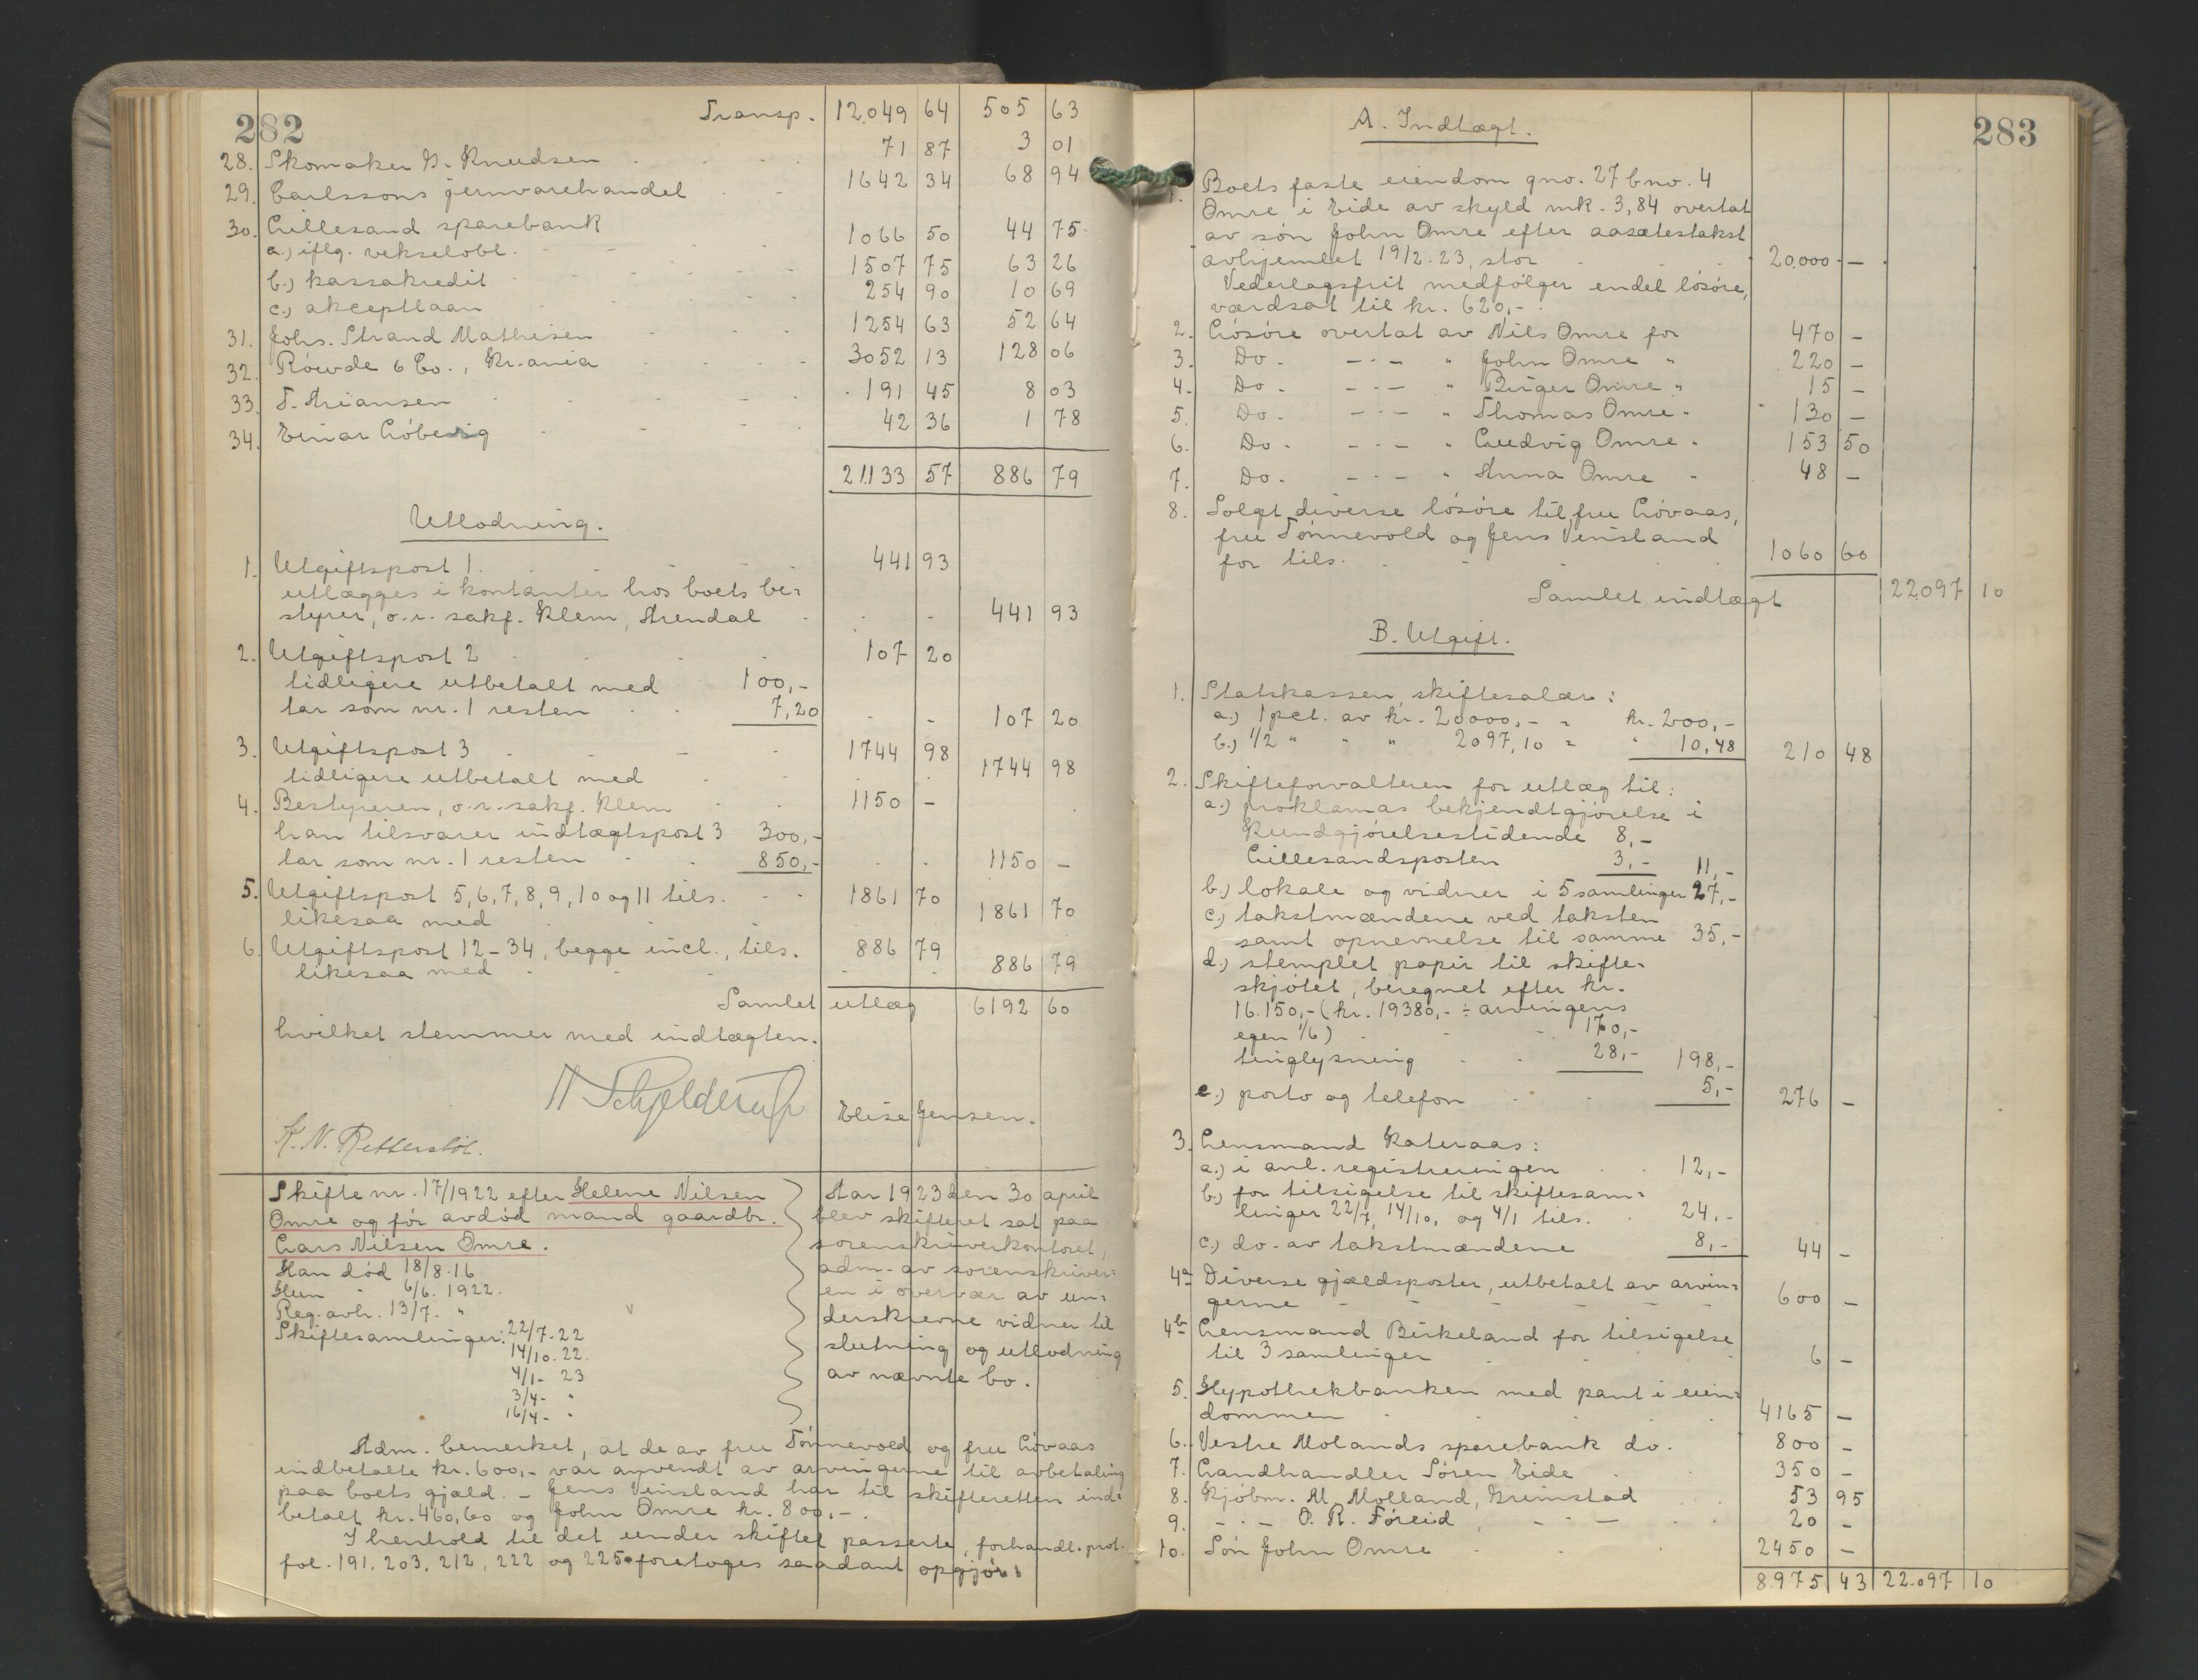 282
Transp. 12.049 64 505 63
28. Skomaker N. Knudsen 71 87 3 01
29. Carlssons jernvarehandel 1642 34 68 94
30. Lillesand sparebank
a.) iflg. vekselobl. 1066 50 44 75
b.) kassakredit 1507 75 63 26
c.) akceptlaan 254 90 10 69
31. Johs. Strand Mathisen 1254 63 52 64
32. Röwde & Co., Kr.ania 3052 13 128 06
33. T. Ariansen 191 45 8 03
34. Einar Löbevig 42 36 1 78
21133 57 886 79
Utlodning.
1. Utgiftspost 1. 441 93
utlægges i kontanter hos boets be-
styrer, o.r. sakf. Klem, Arendal 441 93
2. Utgiftspost 2 107 20
tidligere utbetalt med 100,-
tar som nr. 1 resten 7,20 107 20
3. Utgiftspost 3 1744 98
tidligere utbetalt med 1744 98
4. Bestyreren, o.r. sakf. Klem 1150 -
han tilsvarer indtægtspost 3 300,-
tar som nr. 1 resten 850,- 1150 -
5. Utgiftspost 5, 6, 7, 8, 9, 10 og 11 tils. 1861 70
likesaa med 1861 70
6. Utgiftspost 12-34, begge incl., tils. 886 79
likesaa med 886 79
Samlet utlæg 6192 60
hvilket stemmer med indtægten.
N Schjelderup
Elise Jensen.
K. N. Retterstöl.
Skifte nr. 17/1922 efter Helene Nilsen
Omre og för avdöd mand gaardbr.
Lars Nilsen Omre.
Han död 18/8.16
Hun " 6/6. 1922.
Reg. avh. 13/7. "
Skiftesamlinger: 22/7.22
14/10.22.
4/1- 23
3/4- "
16/4- "
Aar 1923 den 30 april
blev skifteret sat paa
sorenskriverkontoret,
adm. av sorenskriver-
en i overvær av un-
derskrevne vidner til
slutning og utlodning
av nævnte bo.
Adm. bemerket, at de av fru Tönnevold og fru Lövaas
indbetalte kr. 600,- var anvendt av arvingerne til avbetaling
paa boets gjæld. - Jens Vinsland har til skifteretten ind-
betalt kr. 460,60 og John Omre kr. 800,-.
I henhold til det under skiftet passerte, forhandl. prot.
fol. 191, 203, 212, 222 og 225 foretoges saadant opgjör:
283
A. Indtægt.
1. Boets faste eiendom gno. 27 bno. 4
Omre i Eide av skyld mk. 3,84 overtat
av sön John Omre efter aasætestakst
avhjemlet 19/2.23, stor 20.000 -
Vederlagsfrit medfölger endel lösöre,
værdsat til kr. 620,-.
2. Lösöre overtat av Nils Omre for 470 -
3. Do. -"- " John Omre " 220 -
4. Do. -"- " Birger Omre " 15 -
5. Do. -"- " Thomas Omre " 130 -
6. Do. -"- " Ludvig Omre " 153 50
7. Do. -"- " Anna Omre " 48 -
8. Solgt diverse lösöre til fru Lövaas,
fru Tönnevold og Jens Vinsland
for tils. 1060 60
Samlet indtægt 22097 10
B. Utgift.
1. Statskassen, skiftesalær:
a.) 1 pct. av kr. 20000,- = kr. 200,-
b.) 1/2 " " " 2097,10 = " 10,48 210 48
2. Skifteforvalteren for utlæg til:
a.) proklamas bekjendtgjörelse i
Kundgjörelsestidende 8,-
Lillesandsposten 3,- 11,-
b.) lokale og vidner i 5 samlinger 27,-
c.) takstmændene ved taksten
samt opnevnelse til samme 35,-
d.) stemplet papir til skifte-
skjötet, beregnet efter kr.
16.150,- (kr. 19380,- ÷ arvingens
egen 1/6) 170,-
tinglysning 28,- 198,-
e.) porto og telefon 5,- 276 -
3. Lensmand Kateraas:
a.) i anl. registreringen 12,-
b.) for tilsigelse til skiftesam-
linger 22/7, 14/10, og 4/1 tils. 24,-
c.) do. av takstmændene 8,- 44 -
4a Diverse gjældsposter, utbetalt av arvin-
gerne 600 -
4b Lensmand Birkeland for tilsigelse
til 3 samlinger 6 -
5. Hypothekbanken med pant i eien-
dommen 4165 -
6. Vestre Molands sparebank do. 800 -
7. Landhandler Sören Eide 350 -
8. Kjöbm. M. Molland, Grimstad 53 95
9. -"- O. R. Föreid, -"- 20 -
10. Sön John Omre 2450 -
8.975 43 22.097 10